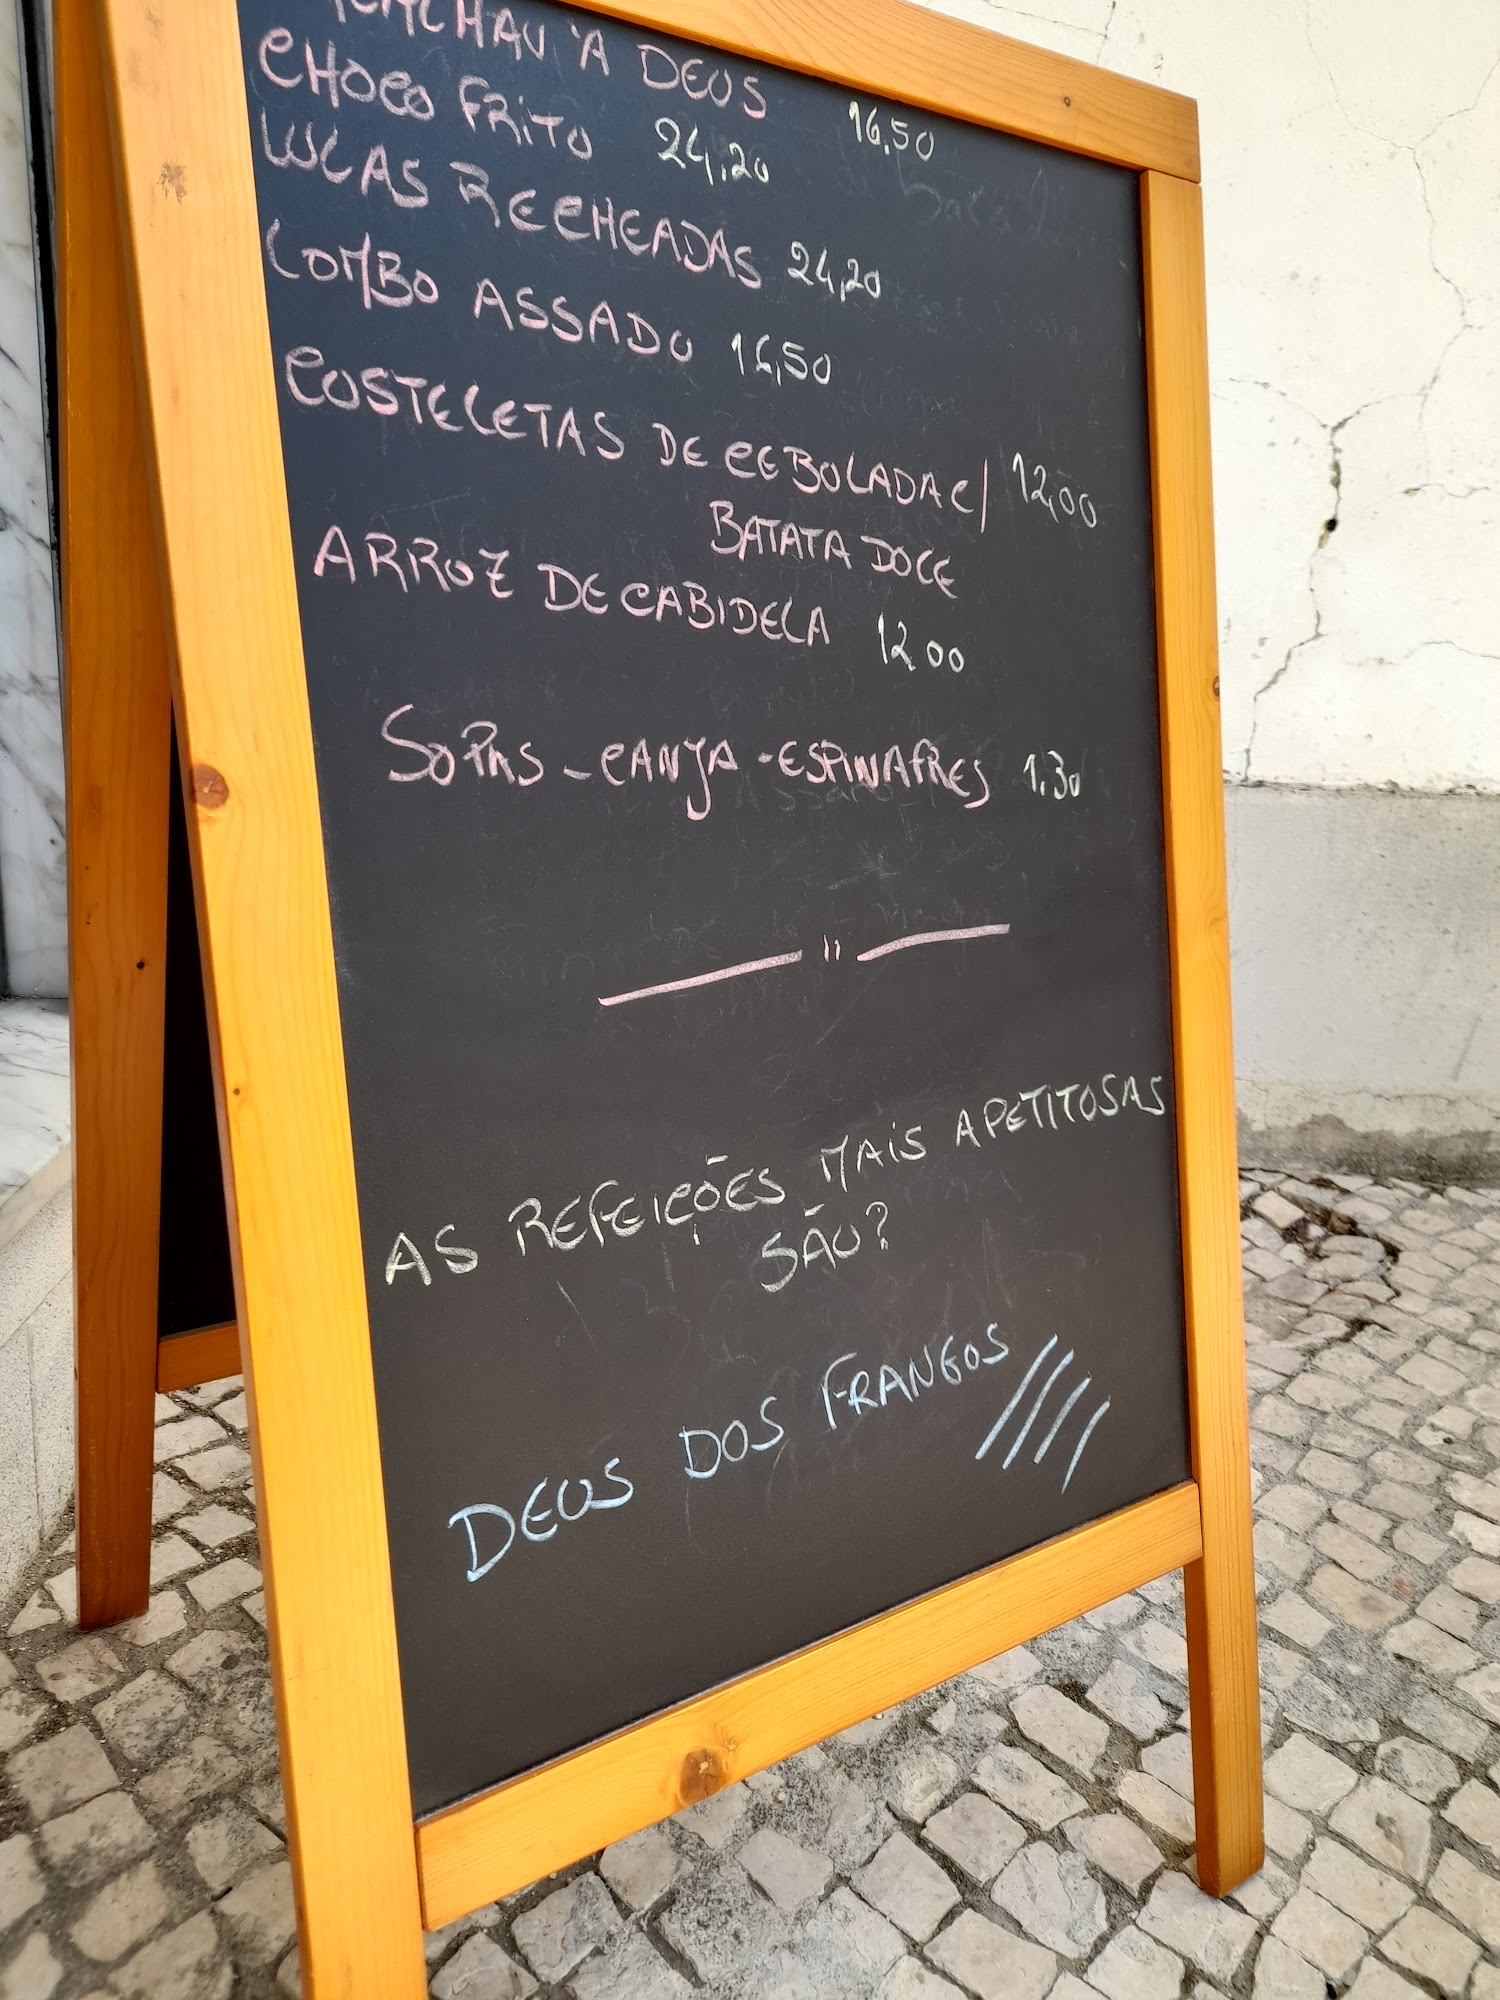 'A DEUS 16,50
CHOCO FRITO 24,20
LULAS RECHEADAS 24,20
LOMBO ASSADO 16,50
COSTELETAS DE CEBOLADA C/ 12,00
BATATA DOCE
ARROZ DE CABIDELA 12 00
SOPAS - CANJA - ESPINAFRES 1,30
AS REFEIÇÕES MAIS APETITOSAS
SÃO?
DEUS DOS FRANGOS